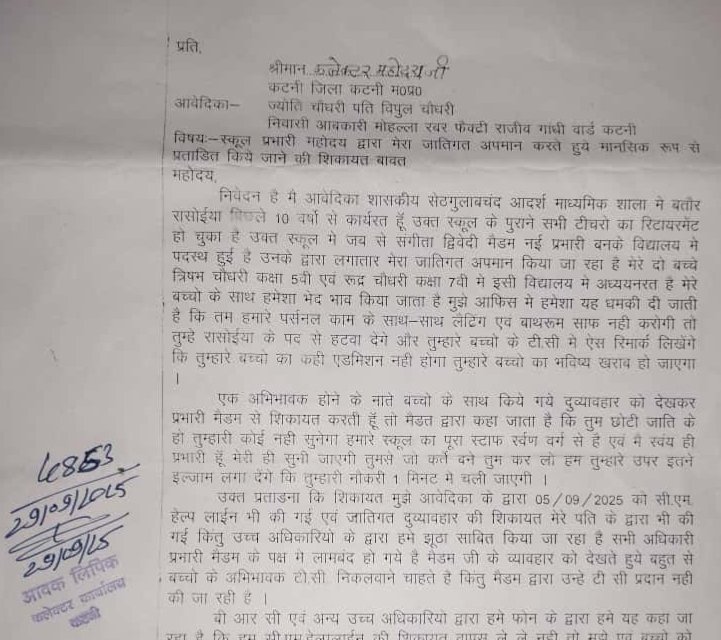 प्रति,
श्रीमान कलेक्टर महोदय जी
कटनी जिला कटनी म०प्र०
आवेदिका– ज्योति चौधरी पति विपुल चौधरी
निवासी आबकारी मोहल्ला रबर फैक्ट्री राजीव गांधी वार्ड कटनी
विषय:–स्कूल प्रभारी महोदय द्वारा मेरा जातिगत अपमान करते हुये मानसिक रूप से
प्रताडित किये जाने की शिकायत बावत
महोदय,
निवेदन है मै आवेदिका शासकीय सेठगुलाबचंद आदर्श माध्यमिक शाला मे बतौर
रासोईया पिछले 10 वर्षो से कार्यरत हूँ उक्त स्कूल के पुराने सभी टीचरो का रिटायरमेंट
हो चुका है उक्त स्कूल मे जब से संगीता द्विवेदी मैडम नई प्रभारी बनके विद्यालय मे
पदस्थ हुई है उनके द्वारा लगातार मेरा जातिगत अपमान किया जा रहा है मेरे दो बच्चे
त्रिषभ चौधरी कक्षा 5वी एवं रूद्र चौधरी कक्षा 7वी मे इसी विद्यालय मे अध्ययनरत है मेरे
बच्चो के साथ हमेशा भेद भाव किया जाता है मुझे आफिस मे हमेशा यह धमकी दी जाती
है कि तम हमारे पर्सनल काम के साथ–साथ लेटिंग एवं बाथरूम साफ नही करोगी तो
तुम्हे रासोईया के पद से हटवा देंगे और तुम्हारे बच्चो के टी.सी मे ऐस रिमार्क लिखेंगे
कि तुम्हारे बच्चो का कही एडमिशन नही होगा तुम्हारे बच्चो का भविष्य खराब हो जाएगा
।
एक अभिभावक होने के नाते बच्चो के साथ किये गये दुव्यावहार को देखकर
प्रभारी मैडम से शिकायत करती हूँ तो मैडत द्वारा कहा जाता है कि तुम छोटी जाति के
हो तुम्हारी कोई नही सुनेगा हमारे स्कूल का पूरा स्टाफ र्स्वण वर्ग से है एवं मै स्वंय ही
प्रभारी हूँ मेरी ही सुनी जाएगी तुमसे जो कर्ते बने तुम कर लो हम तुम्हारे उपर इतने
इल्जाम लगा देंगे कि तुम्हारी नौकरी 1 मिनट मे चली जाएगी ।
उक्त प्रताडना कि शिकायत मुझे आवेदिका के द्वारा 05/09/2025 को सी.एम.
हेल्प लाईन भी की गई एवं जातिगत दुव्यावहार की शिकायत मेरे पति के द्वारा भी की
गई किंतु उच्च अधिकारियो के द्वारा हमे झूठा साबित किया जा रहा है सभी अधिकारी
प्रभारी मैडम के पक्ष मे लामबंद हो गये है मैडम जी के व्यावहार को देखते हुये बहुत से
बच्चो के अभिभावक टी.सी. निकलवाने चाहते है किंतु मैडम द्वारा उन्हे टी सी प्रदान नही
की जा रही है ।
बी आर सी एवं अन्य उच्च अधिकारियो द्वारा हमे फोन के द्वारा हमे यह कहा जा
रहा है कि हम सी.एम.हेल्पलाईन की शिकायत वापस ले ले नही तो मुझे एवं बच्चो को
4853
29/09/2025
29/09/25
आवक लिपिक
कलेक्टर कार्यालय
कटनी